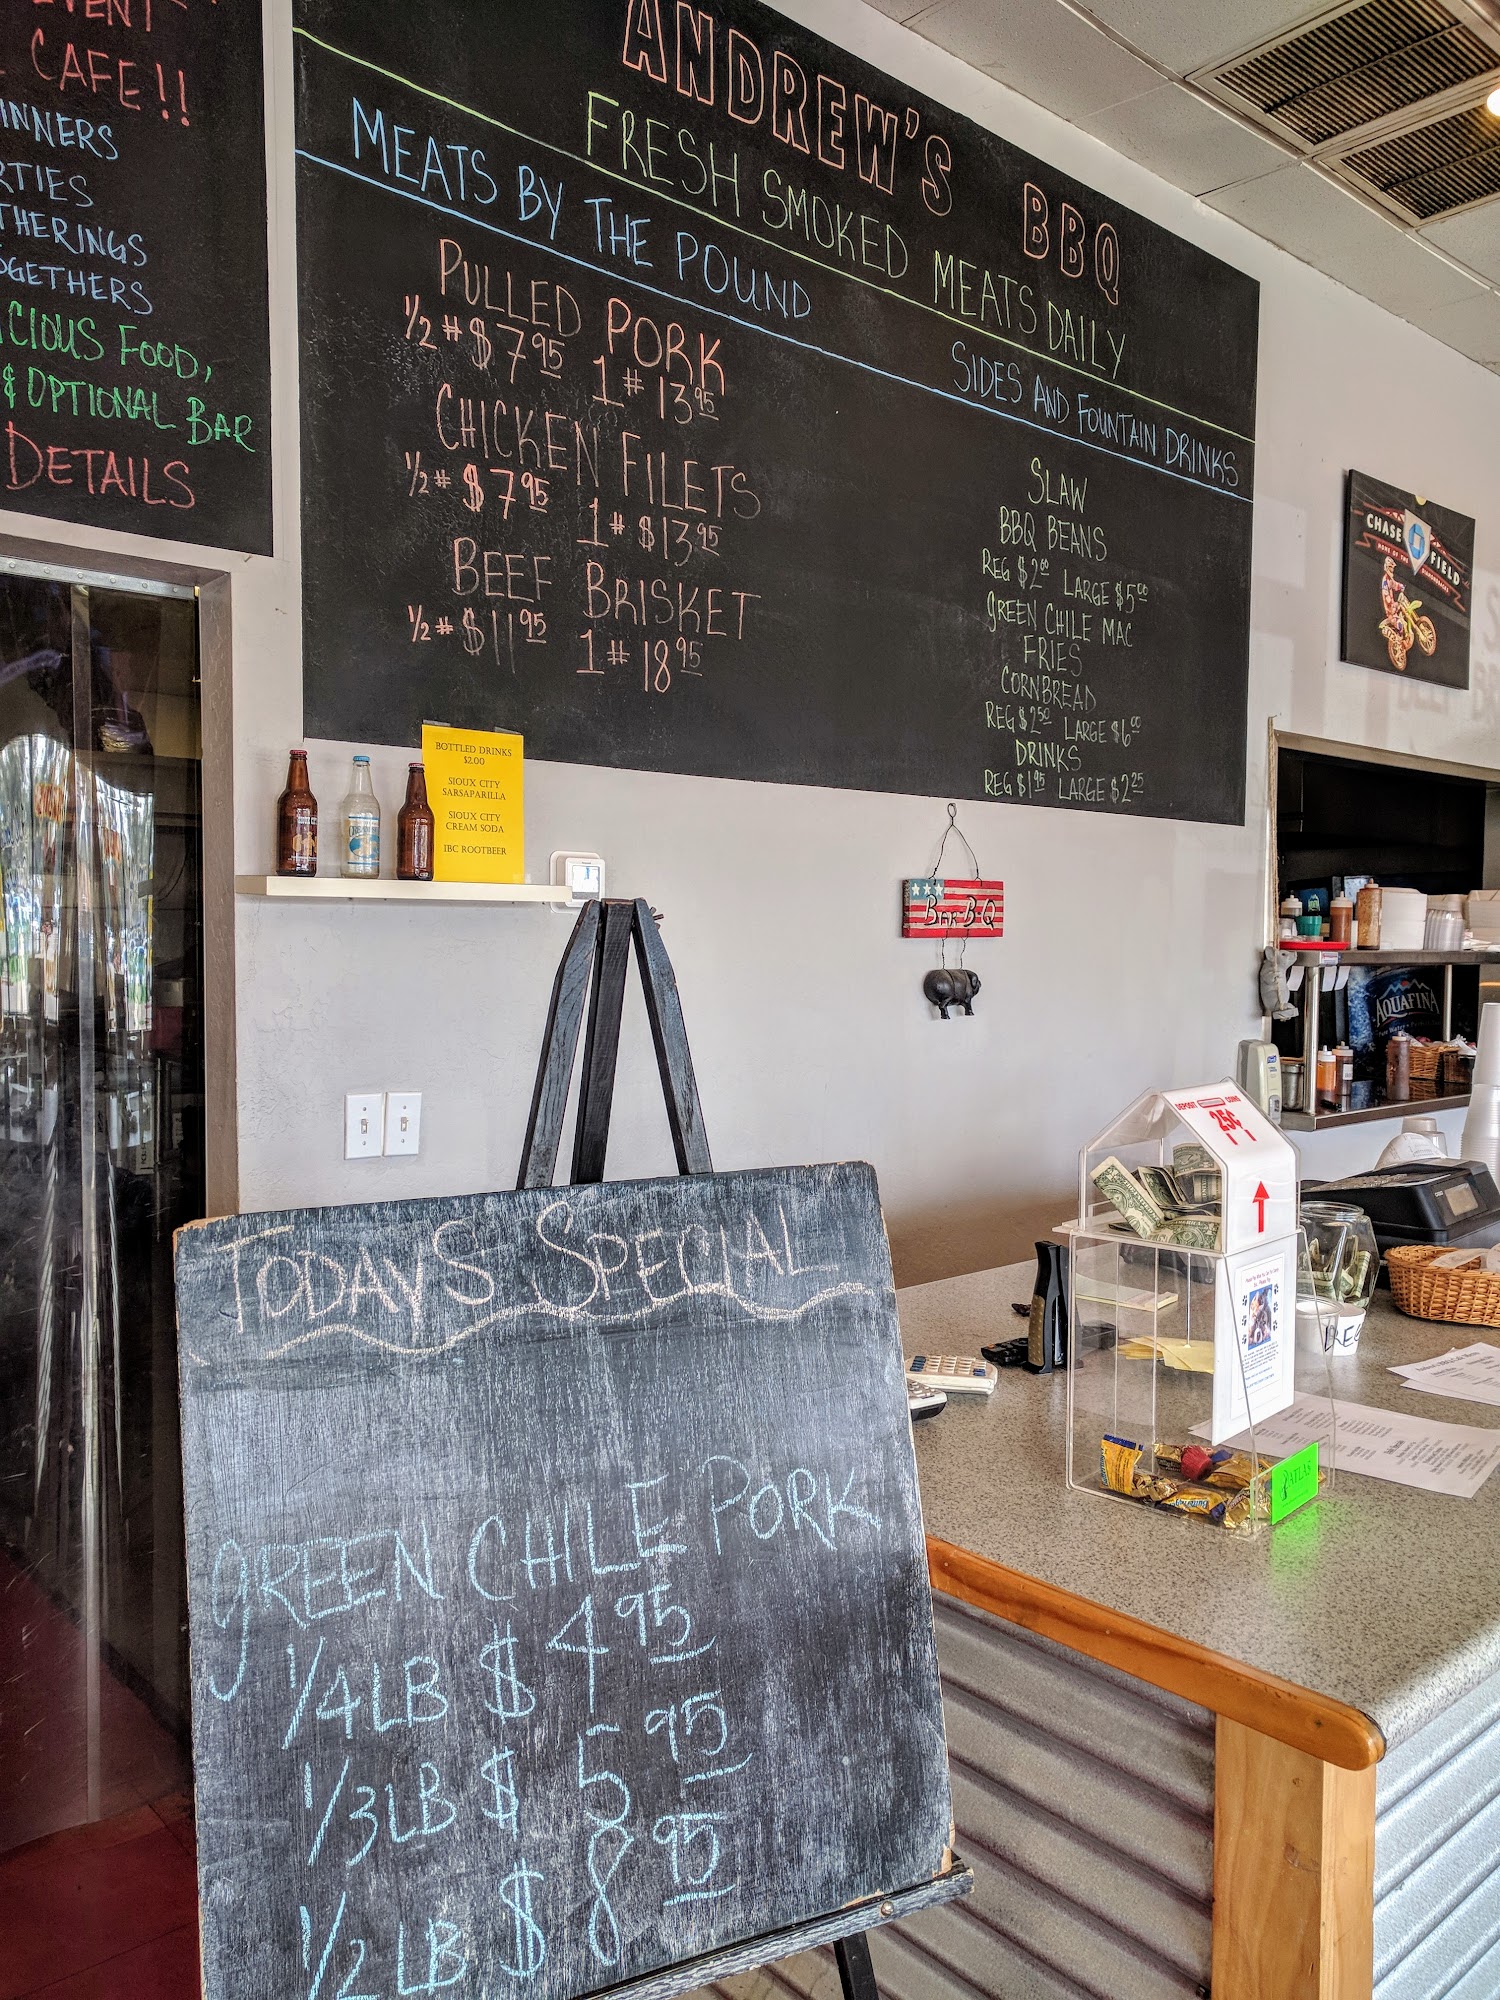 EVENT
CAFE!!
INNERS
RTIES
THERINGS
OGETHERS
ACIOUS FOOD,
& OPTIONAL BAR
DETAILS
ANDREW'S BBQ
FRESH SMOKED MEATS DAILY
MEATS BY THE POUND
PULLED PORK
1/2 # $7 95 1 # 13 95
CHICKEN FILETS
1/2 # $7 95 1 # $13 95
BEEF BRISKET
1/2 # $11 95 1 # 18 95
SIDES AND FOUNTAIN DRINKS
SLAW
BBQ BEANS
REG $2 00 LARGE $5 00
GREEN CHILE MAC
FRIES
CORNBREAD
REG $2 50 LARGE $6 00
DRINKS
REG $1 95 LARGE $2 25
BOTTLED DRINKS
$2.00
SIOUX CITY
SARSAPARILLA
SIOUX CITY
CREAM SODA
IBC ROOTBEER
BAR-B-Q
CHASE FIELD
HOME OF THE
AQUAFINA
DEPOSIT COINS
25¢
ATLAS
TODAYS SPECIAL
GREEN CHILE PORK
1/4 LB $4 95
1/3 LB $5 95
1/2 LB $8 95